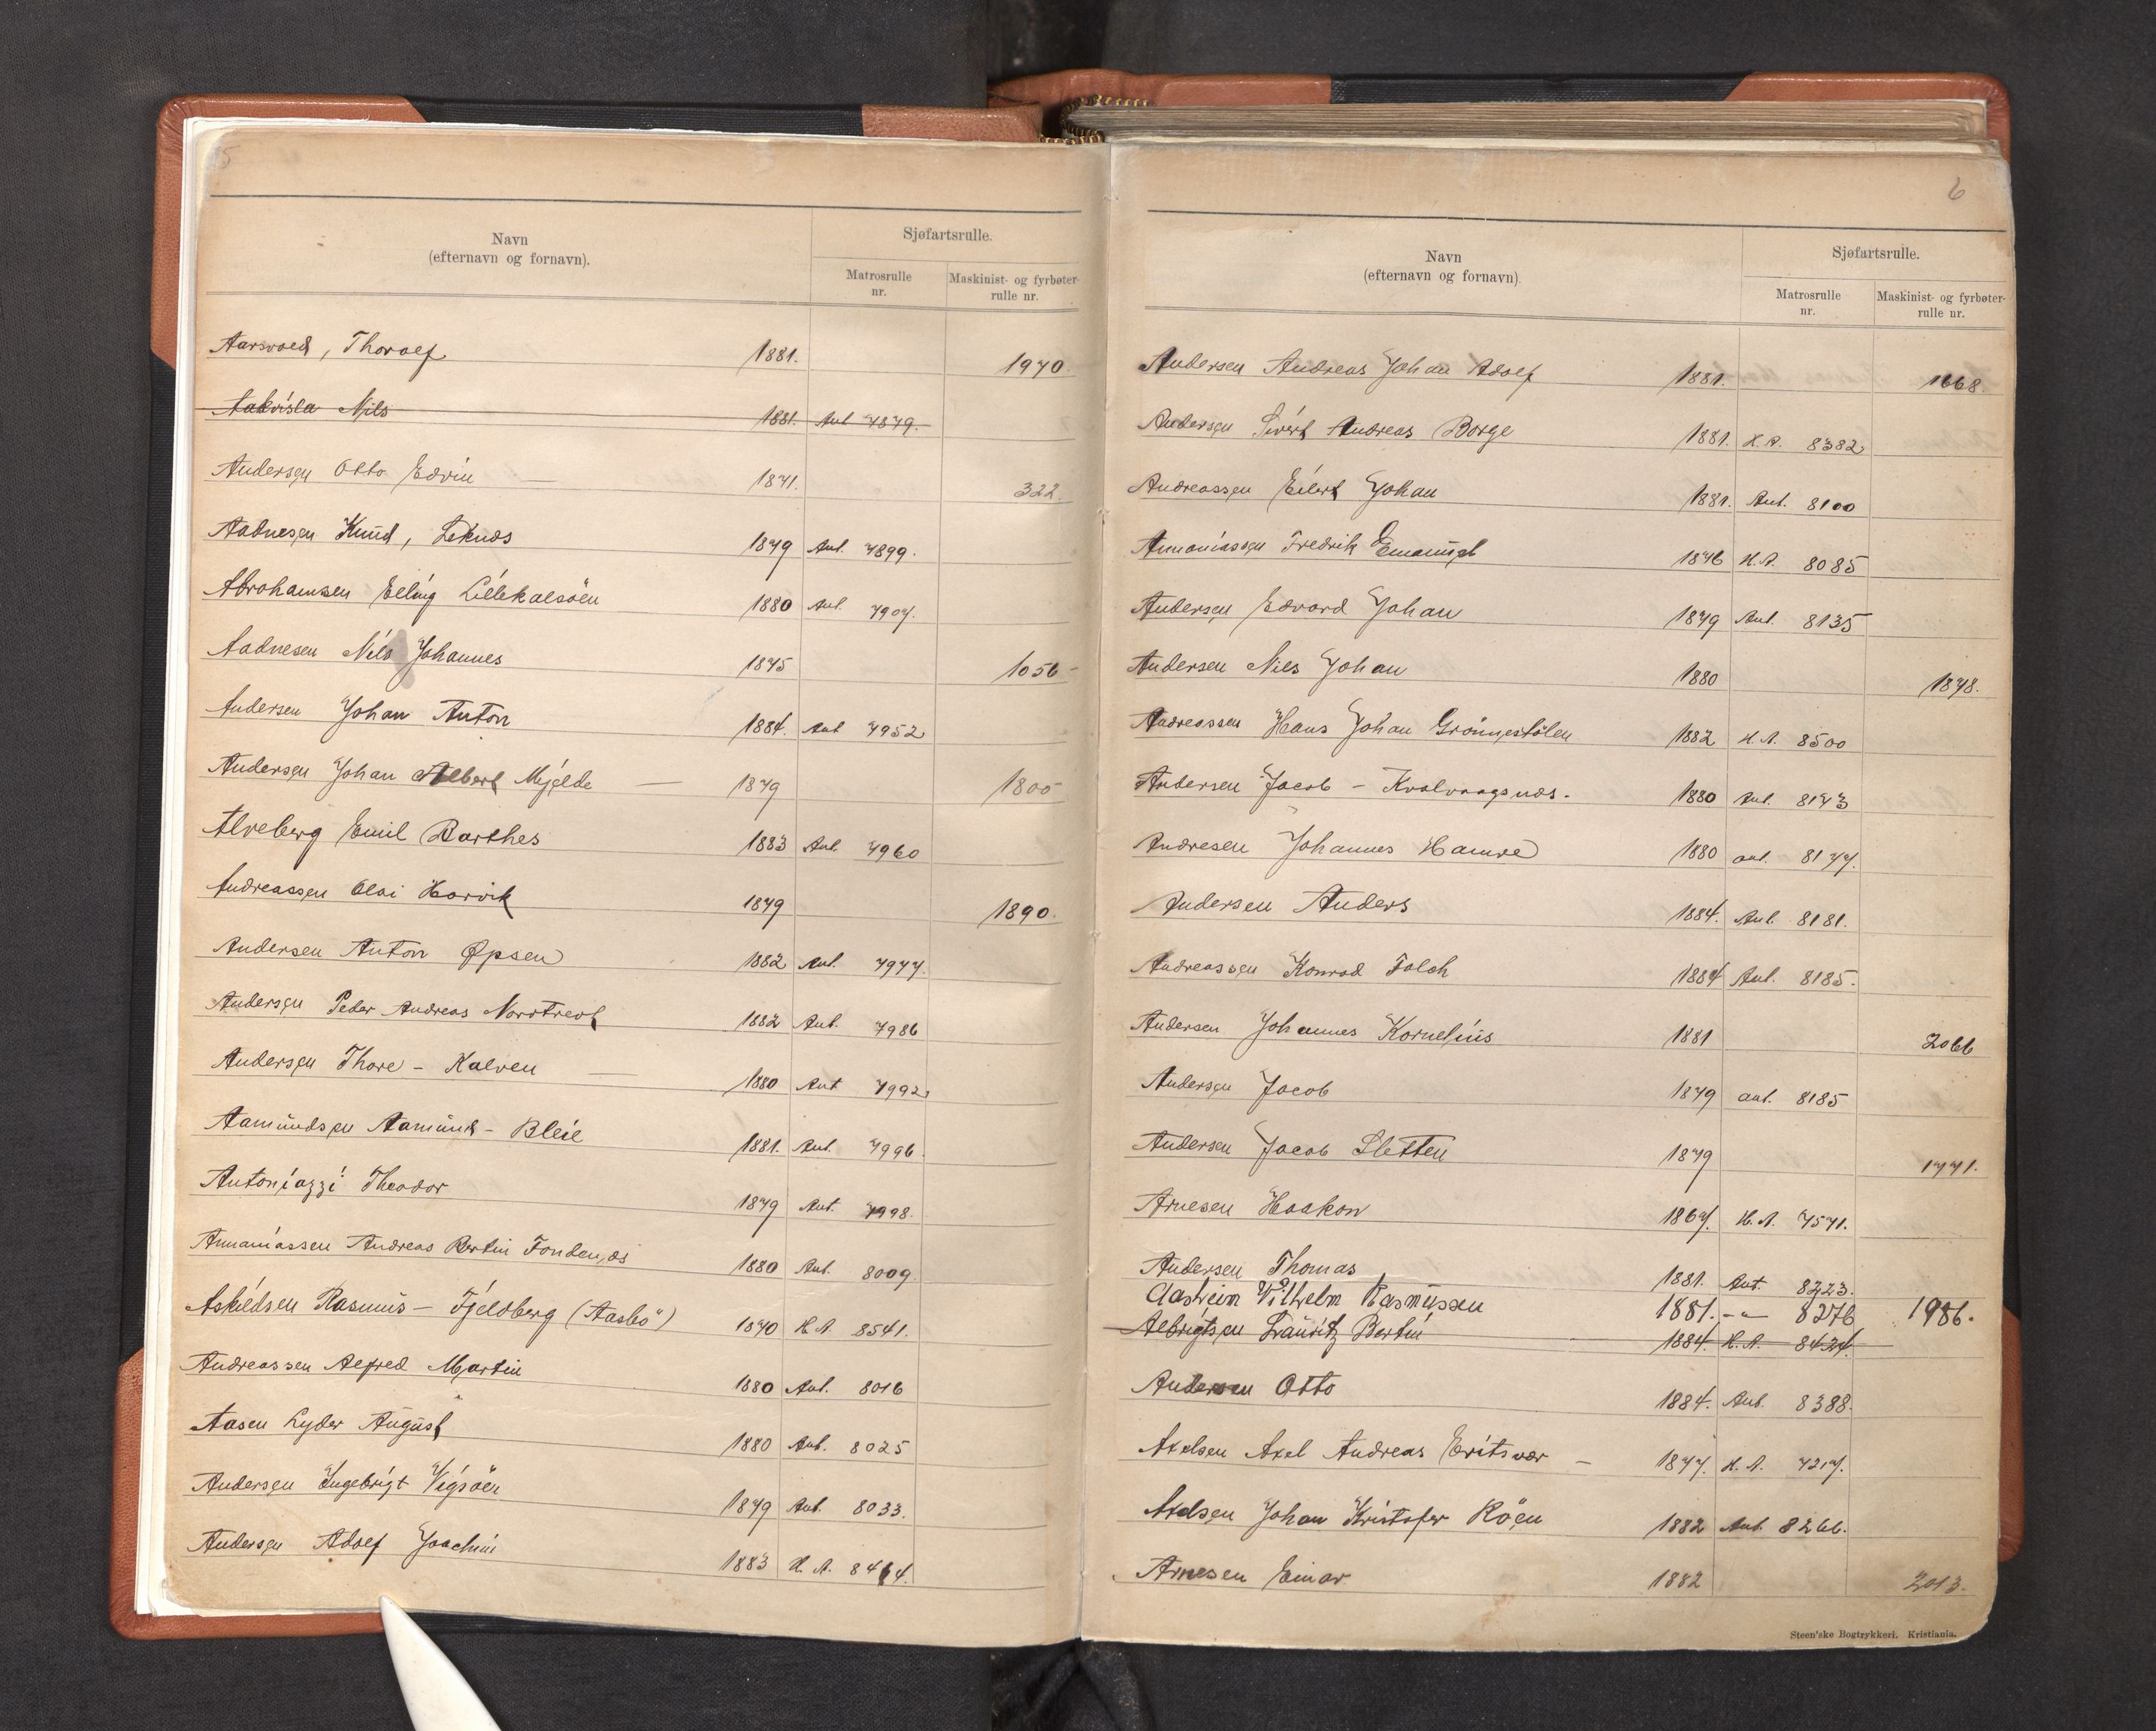 5
Navn
(efternavn og fornavn).
Sjøfartsrulle.
Matrosrulle
nr.
Maskinist- og fyrbøter-
rulle nr.
Aarsvold, Thorolf 1881. 1970.
Aakvisla Nils 1881. Ant 7879.
Andersen Otto Edvin — 1871. 322
Aadnesen Knud, Leknes 1879 Ant. 7899.
Abrahamsen Elling Lillekalsöen 1880 Ant. 7907.
Aadnesen Nils Johannes 1875 1056 -
Andersen Johan Anton 1884. Ant 7952
Andersen Johan Albert Mjelde — 1879 1805
Alveberg Emil Barthes 1883 Ant. 7960
Andreassen Olai Horvik 1879 1890.
Andersen Anton Øpsen 1882 Ant. 7977.
Andersen Peder Andreas 1882 Ant. 7986
Andersen Thore - Kalven — 1880 Ant 7992
Aamundsen Aamund - Bleie 1881. Ant. 7996.
Antoniazzi Theodor 1879 Ant. 7998.
Annaniassen Andreas Bertin 1880 Ant. 8009
Askildsen Rasmus - Fjeldberg (Aasbö) 1870 H.A. 8541.
Andreassen Alfred Martin 1880 Ant. 8016
Aasen Lyder August 1880 Ant. 8025
Andersen Ingebrigt Vigsöen 1879 Ant. 8033.
Andersen Adolf Joachim 1883 H.A. 8464.
6
Navn
(efternavn og fornavn).
Sjøfartsrulle.
Matrosrulle
nr.
Maskinist- og fyrbøter-
rulle nr.
Andersen Andreas Johan Adolf 1881. 1668
Andersen Sivert Andreas Borge 1881. H.A. 8382
Andreassen Eilert Johan 1881. Ant. 8100
Annaniassen Fredrik Emanuel 1876 H.A. 8085
Andersen Edvard Johan 1879 Ant. 8135
Andersen Nils Johan 1880 1878.
Andreassen Hans Johan Grönnestölen 1882 H.A. 8500
Andersen Jacob - Kvalvaagsnes. 1880 Ant. 8173
Andresen Johannes Hamre 1880 ant. 8177.
Andersen Anders 1884. Ant. 8181.
Andreassen Konrad Falch 1884 Ant. 8185.
Andersen Johannes Kornelius 1881 2066
Andersen Jacob 1879 ant. 8185
Andersen Jacob Sletten 1879 1771.
Arnesen Haakon 1867. H.A. 7571.
Andersen Thomas 1881. Ant. 8223.
Aasheim Vilhelm Rasmussen 1881. -"- 8276 1986.
Albrigtsen Lauritz Bertin 1884. H.A. 8434.
Andersen Otto 1884. Ant. 8388.
Axelsen Axel Andreas Eritsvær - 1877. H.A. 7217.
Axelsen Johan Kristofer Röen 1882 Ant. 8266.
Arnesen Einar 1882 2013.
Steen'ske Bogtrykkeri. Kristiania.